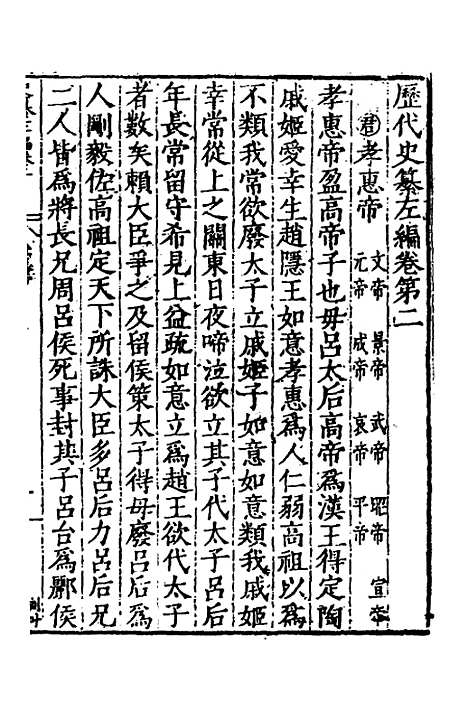 歷代史纂左編卷第二
君孝惠帝 文帝 景帝 武帝 昭帝 宣帝
元帝 成帝 哀帝 平帝
孝惠帝盈高帝子也毋呂太后高帝爲漢王得定陶
戚姬愛幸生趙隱王如意孝惠爲人仁弱高祖以爲
不類我常欲廢太子立戚姬子如意如意類我戚姬
幸常從上之關東日夜啼泣欲立其子代太子呂后
年長常留守希見上益疏如意立爲趙王欲代太子
者數矣賴大臣爭之及留侯策太子得毋廢呂后爲
人剛毅佐高祖定天下所誅大臣多呂后力呂后兄
二人皆爲將長兄周呂侯死事封其子呂台爲酈侯